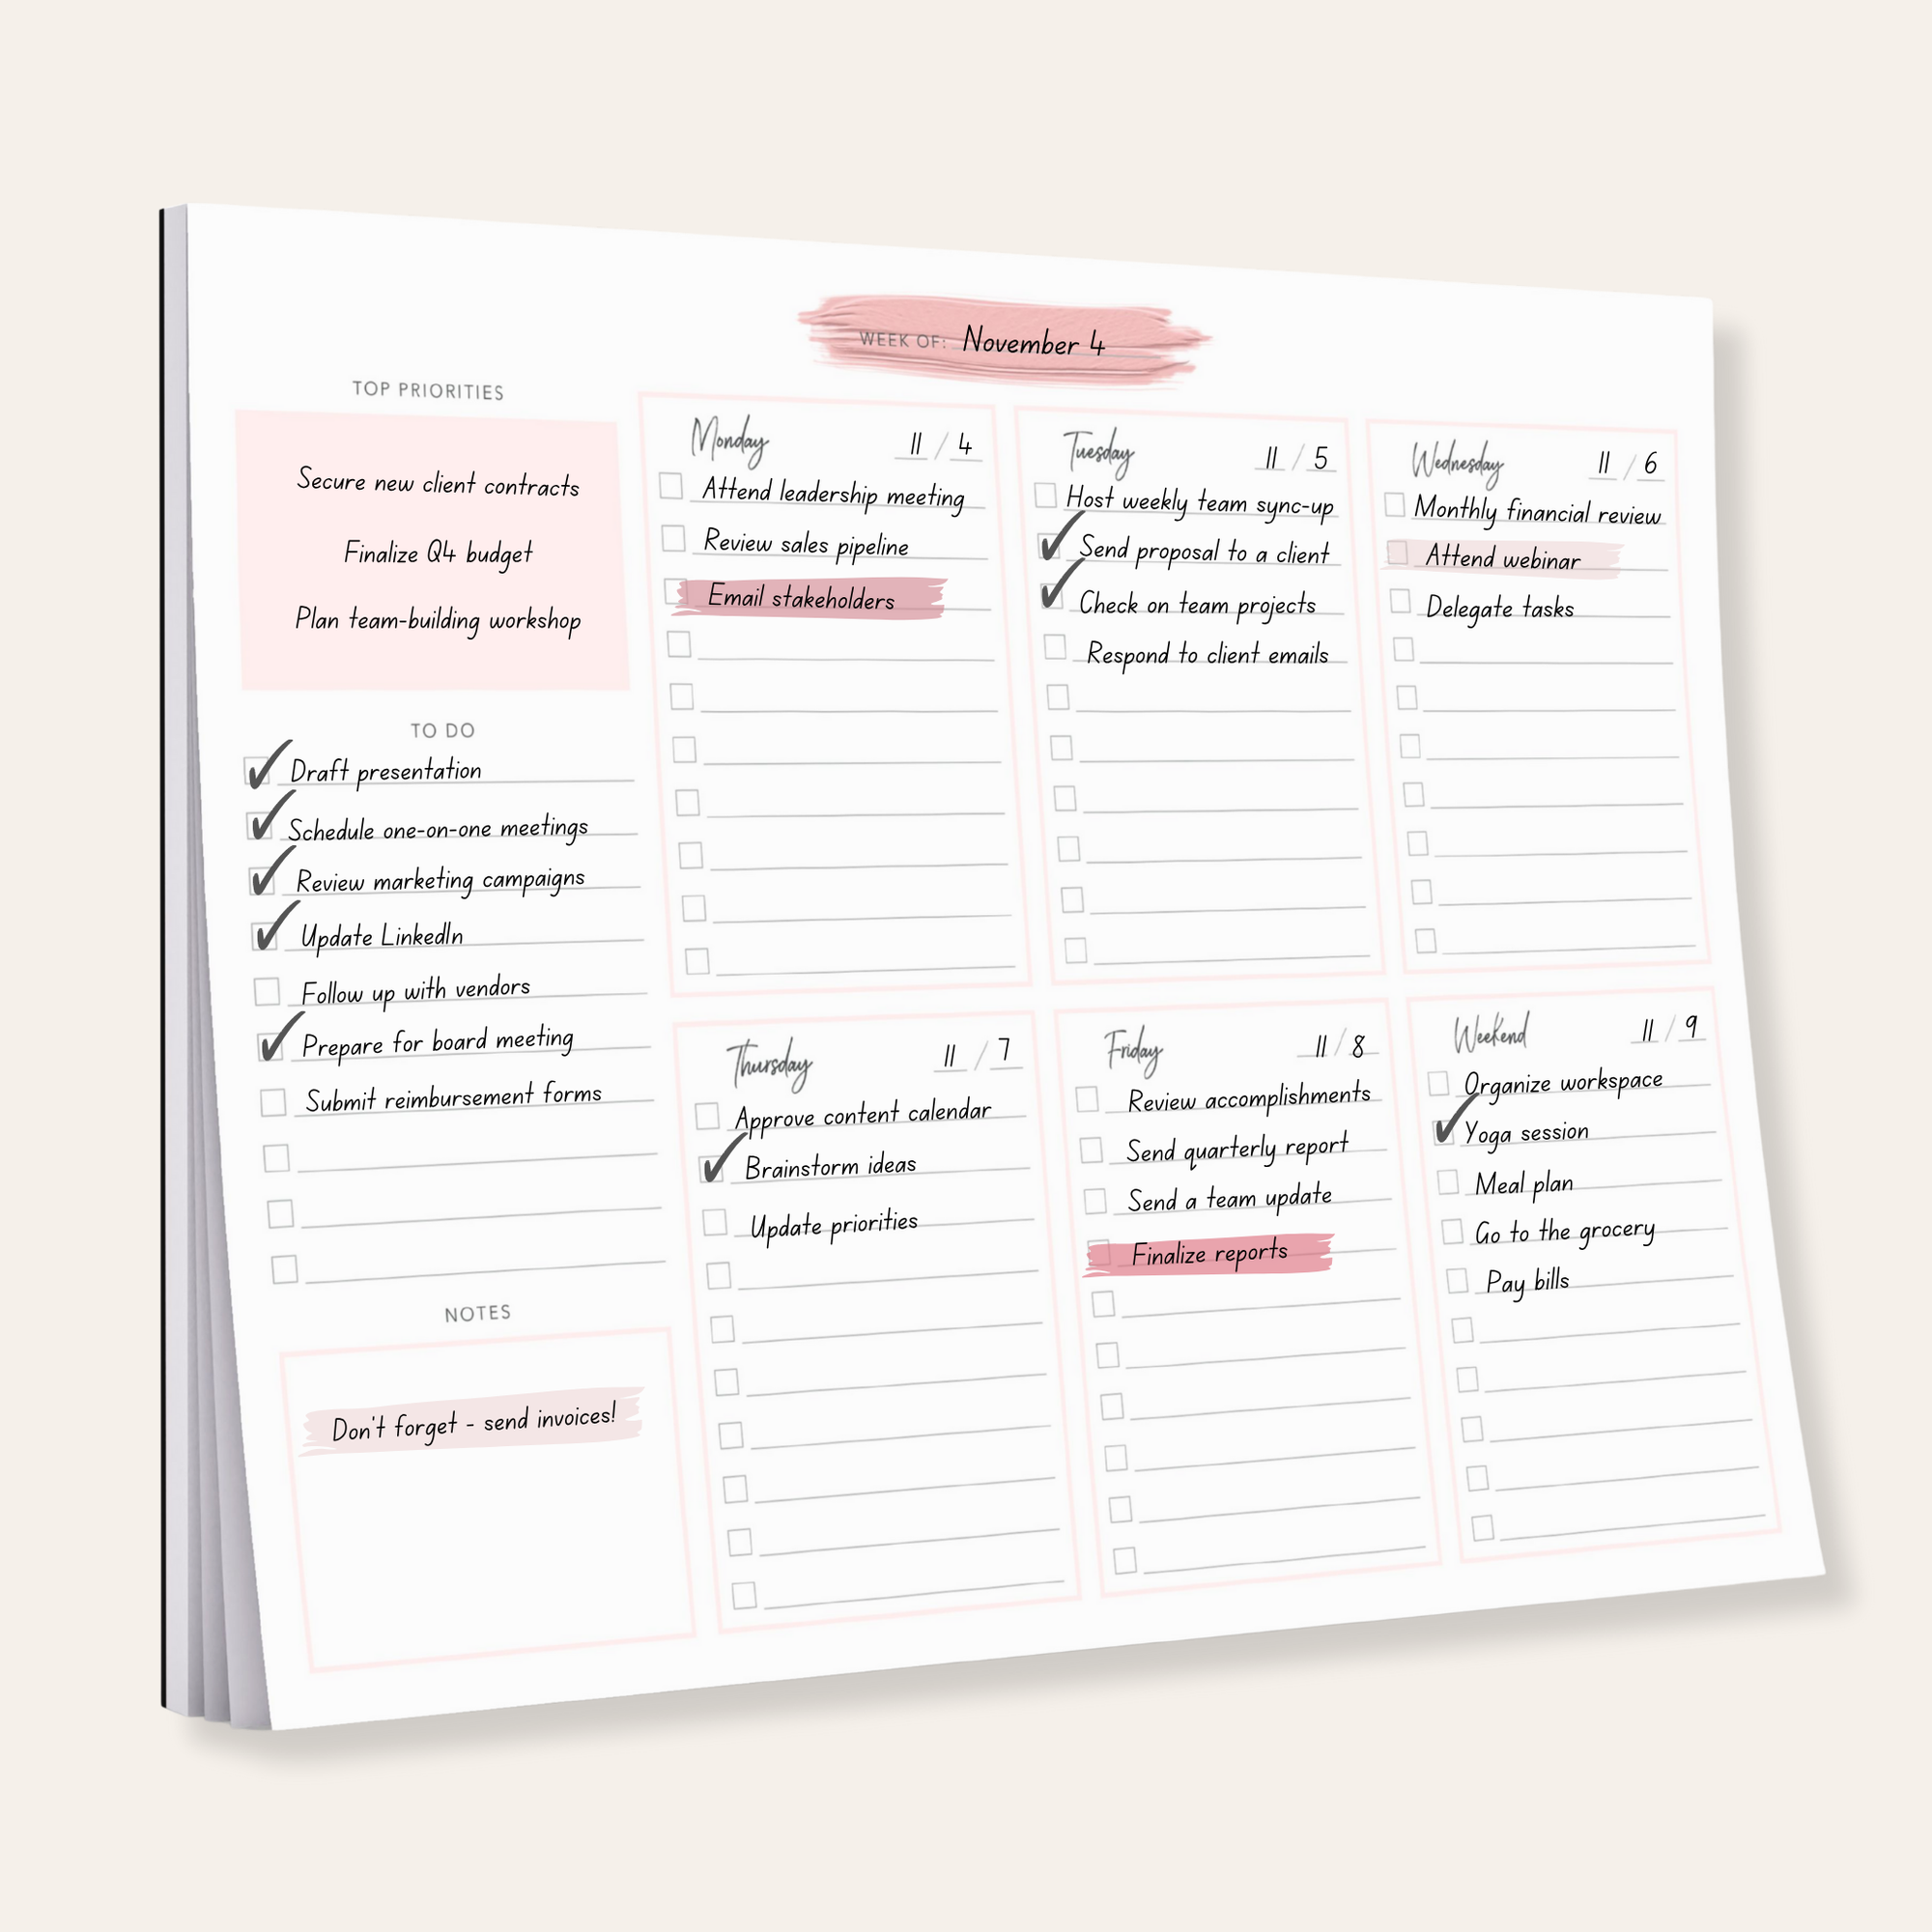 WEEK OF: November 4
TOP PRIORITIES
Secure new client contracts
Finalize Q4 budget
Plan team-building workshop
TO DO
Draft presentation
Schedule one-on-one meetings
Review marketing campaigns
Update LinkedIn
Follow up with vendors
Prepare for board meeting
Submit reimbursement forms
NOTES
Don't forget - send invoices!
Monday 11 / 4
Attend leadership meeting
Review sales pipeline
Email stakeholders
Tuesday 11 / 5
Host weekly team sync-up
Send proposal to a client
Check on team projects
Respond to client emails
Wednesday 11 / 6
Monthly financial review
Attend webinar
Delegate tasks
Thursday 11 / 7
Approve content calendar
Brainstorm ideas
Update priorities
Friday 11 / 8
Review accomplishments
Send quarterly report
Send a team update
Finalize reports
Weekend 11 / 9
Organize workspace
Yoga session
Meal plan
Go to the grocery
Pay bills